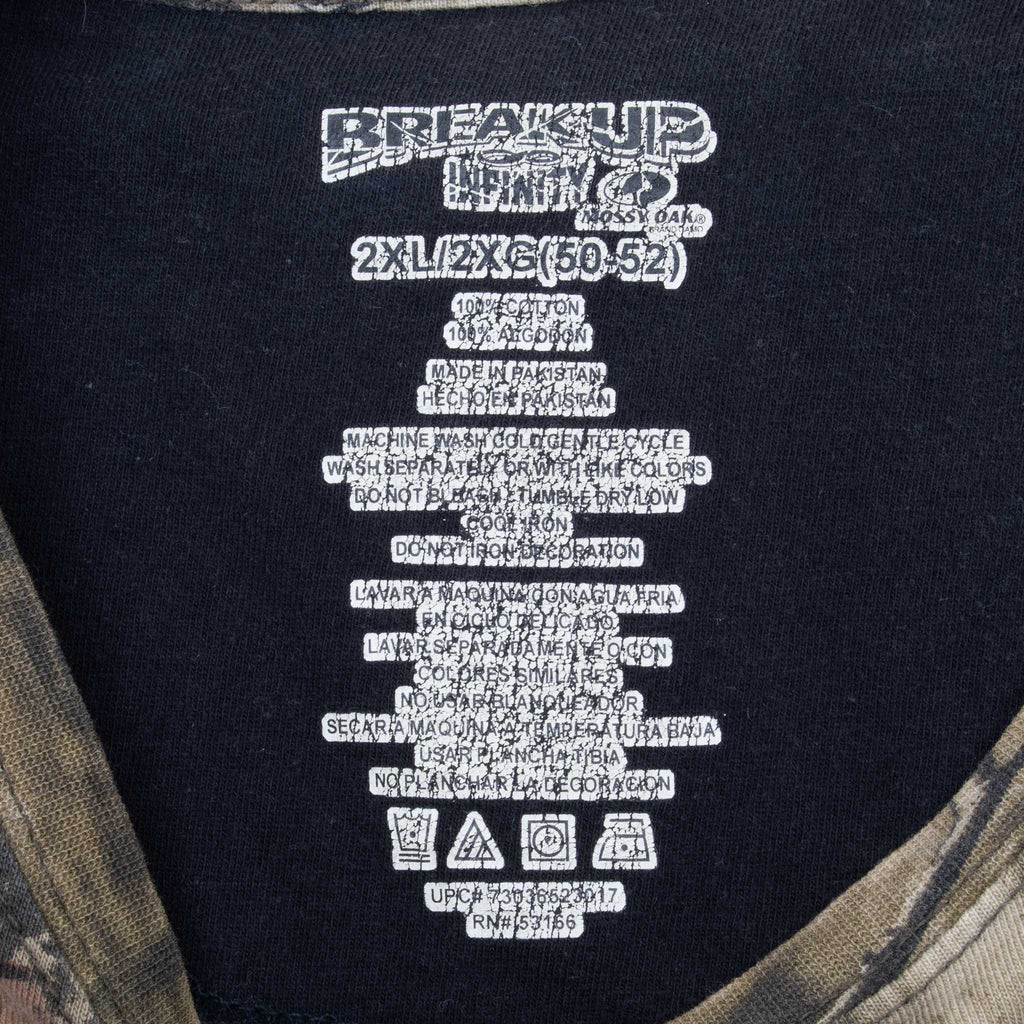 BREAK UP
INFINITY
MOSSY OAK®
2XL/2XG(50-52)
100% COTTON
100% ALGODON
MADE IN PAKISTAN
HECHO EN PAKISTÁN
MACHINE WASH COLD GENTLE CYCLE
WASH SEPARATELY OR WITH LIKE COLORS
DO NOT BLEACH - TUMBLE DRY LOW
COOL IRON
DO NOT IRON DECORATION
LAVAR A MAQUINA CON AGUA FRIA
EN CICLO DELICADO
LAVAR SEPARADAMENTE O CON
COLORES SIMILARES
NO USAR BLANQUEADOR
SECAR A MAQUINA A TEMPERATURA BAJA
USAR PLANCHA TIBIA
NO PLANCHAR LA DECORACION
UPC# 73036523017
RN# 53166